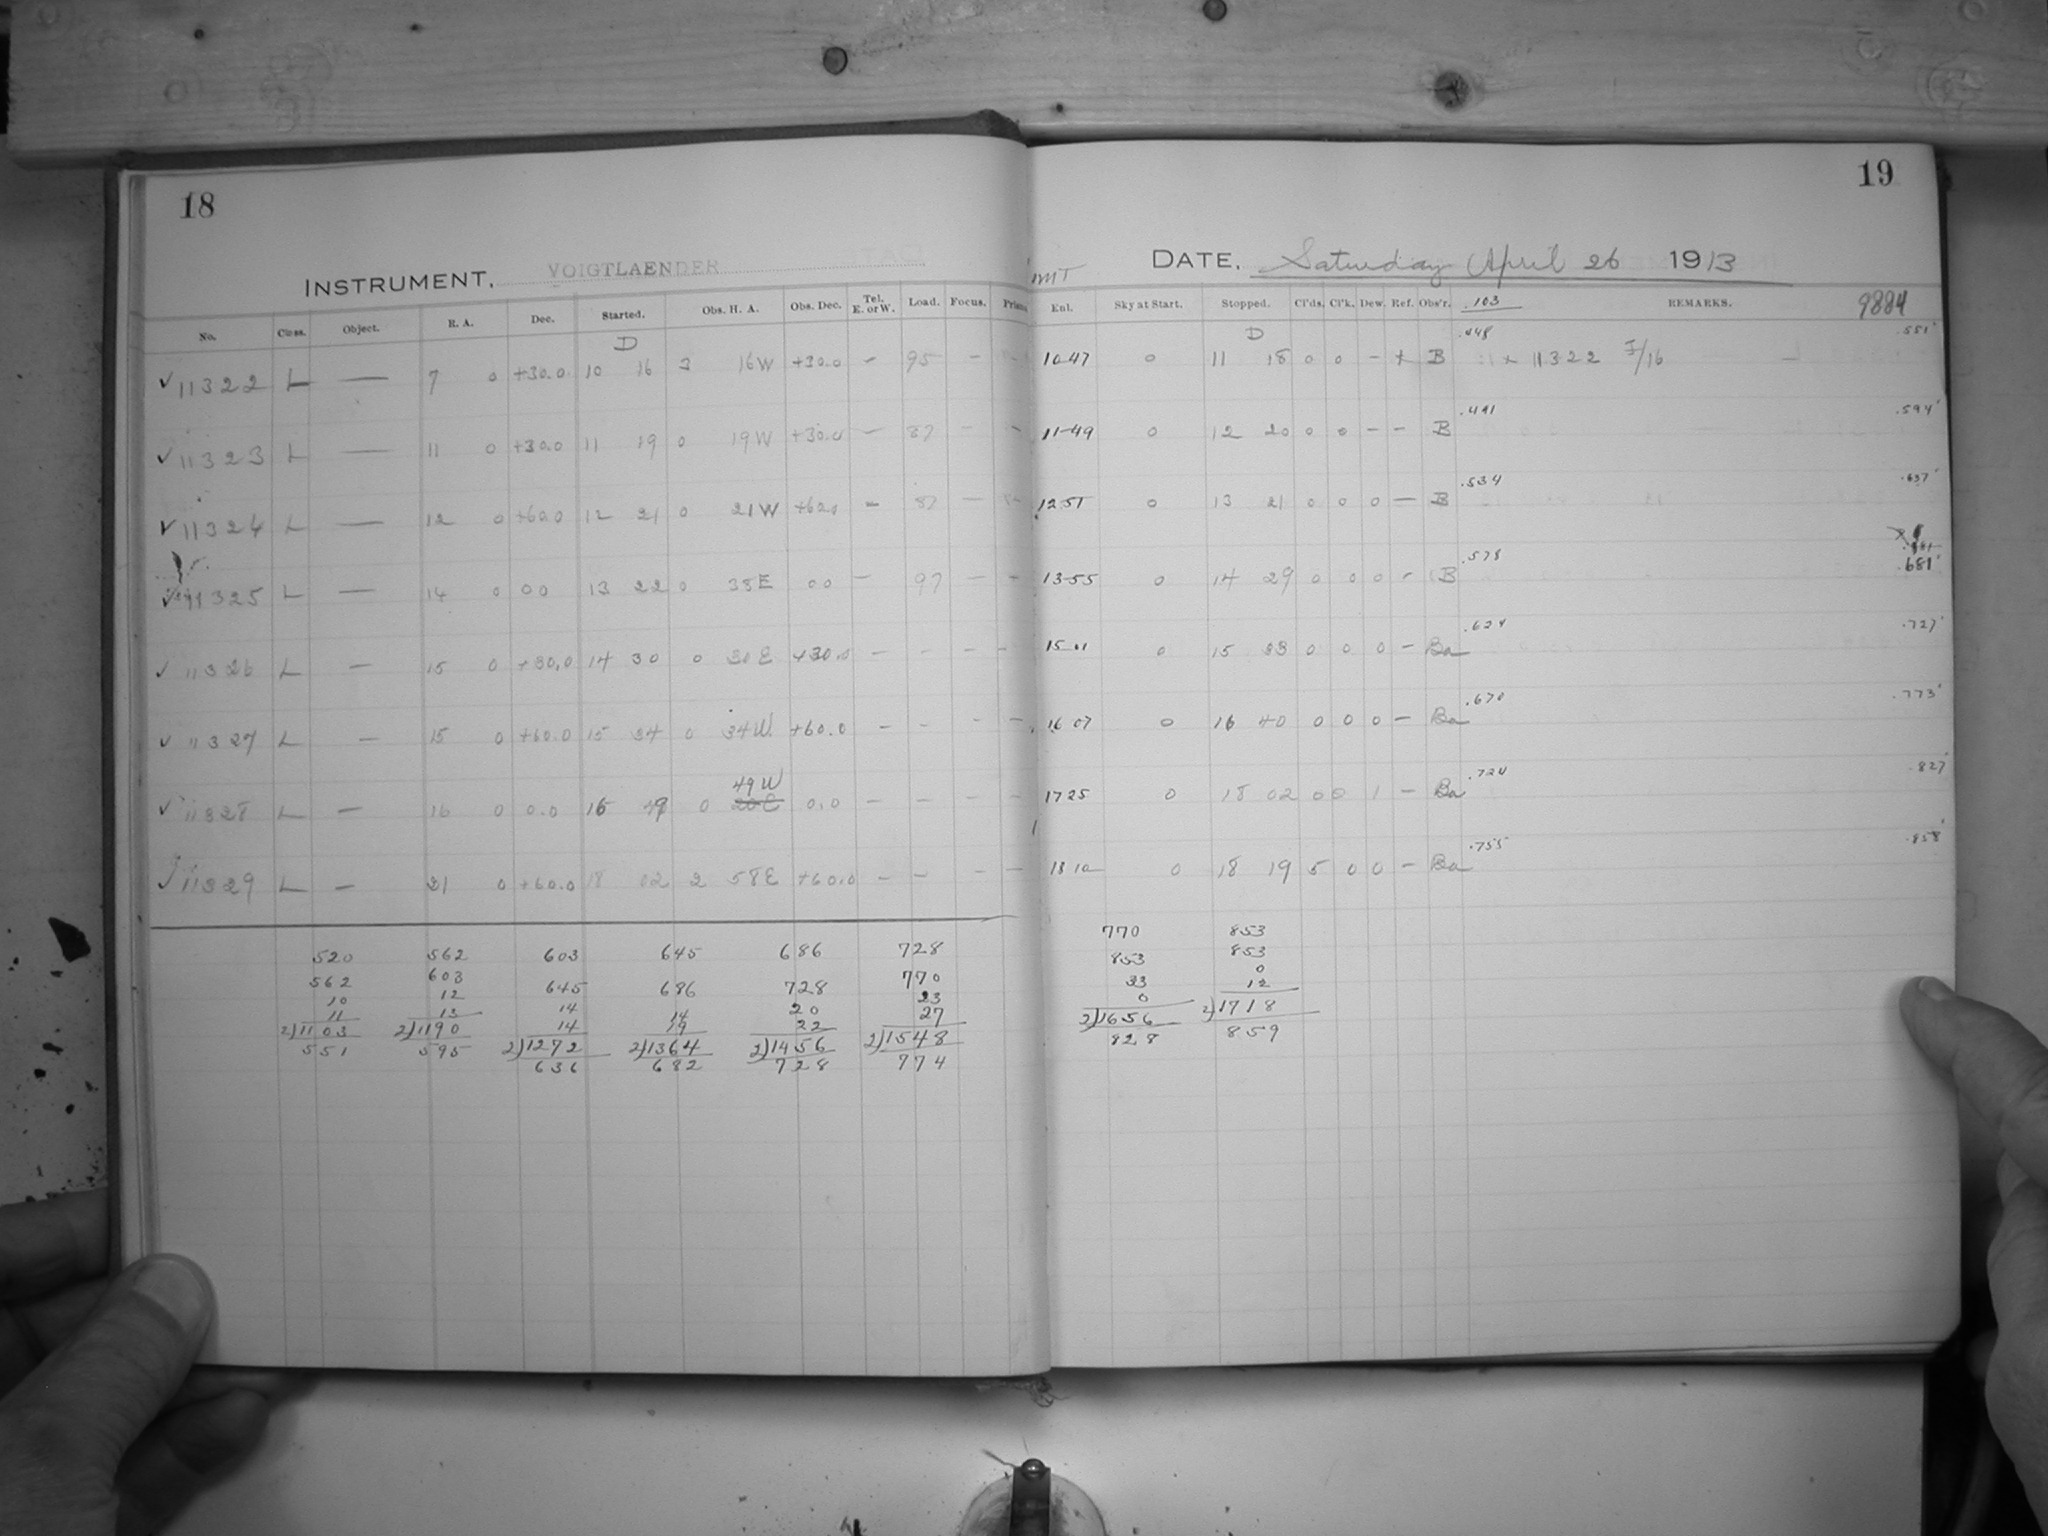 18
INSTRUMENT, VOIGTLAENDER
No. Class. Object. R. A. Dec. Started. Obs. H. A. Obs. Dec. Tel. E. or W. Load. Focus.
D
✓ 11322 L — 7 0 +30.0 10 16 3 16W +30.0 – 95 –
✓ 11323 L — 11 0 +30.0 11 19 0 19W +30.0 – 87 – –
✓ 11324 L — 12 0 +60.0 12 21 0 21W +60.0 – 87 –
✓ 11325 L — 14 0 00 13 22 0 38E 00 – 97 – –
✓ 11326 L — 15 0 +30.0 14 30 0 30E +30.0 – – – –
✓ 11327 L — 15 0 +60.0 15 34 0 34W. +60.0 – – – –
49W
✓ 11328 L — 16 0 0.0 16 49 0 20E 0.0 – – – –
✓ 11329 L — 21 0 +60.0 18 02 2 58E +60.0 – – – –
520 562 603 645 686 728
562 603 645 686 728 770
10 12 14 14 20 23
11 13 14 19 22 27
2)1103 2)1190 2)1272 2)1364 2)1456 2)1548
551 595 636 682 728 774
19
DATE, Saturday April 26 1913
Enl. Sky at Start. Stopped. Cl'ds. Cl'k. Dew. Ref. Obs'r. .103 REMARKS. 9884
D .448 .551'
10 47 0 11 18 0 0 – + B 11322 I/16 –
.491 .594'
11 49 0 12 20 0 0 – – B
.534 .637'
12 51 0 13 21 0 0 0 – B
.578 .681'
13 55 0 14 29 0 0 0 – B
.624 .727'
15 01 0 15 33 0 0 0 – Ba
.670 .773'
16 07 0 16 40 0 0 0 – Ba
.724 .827'
17 25 0 18 02 0 0 1 – Ba
.755 .858'
18 10 0 18 19 5 0 0 – Ba
770 853
853 853
33 0
0 12
2)1656 2)1718
828 859